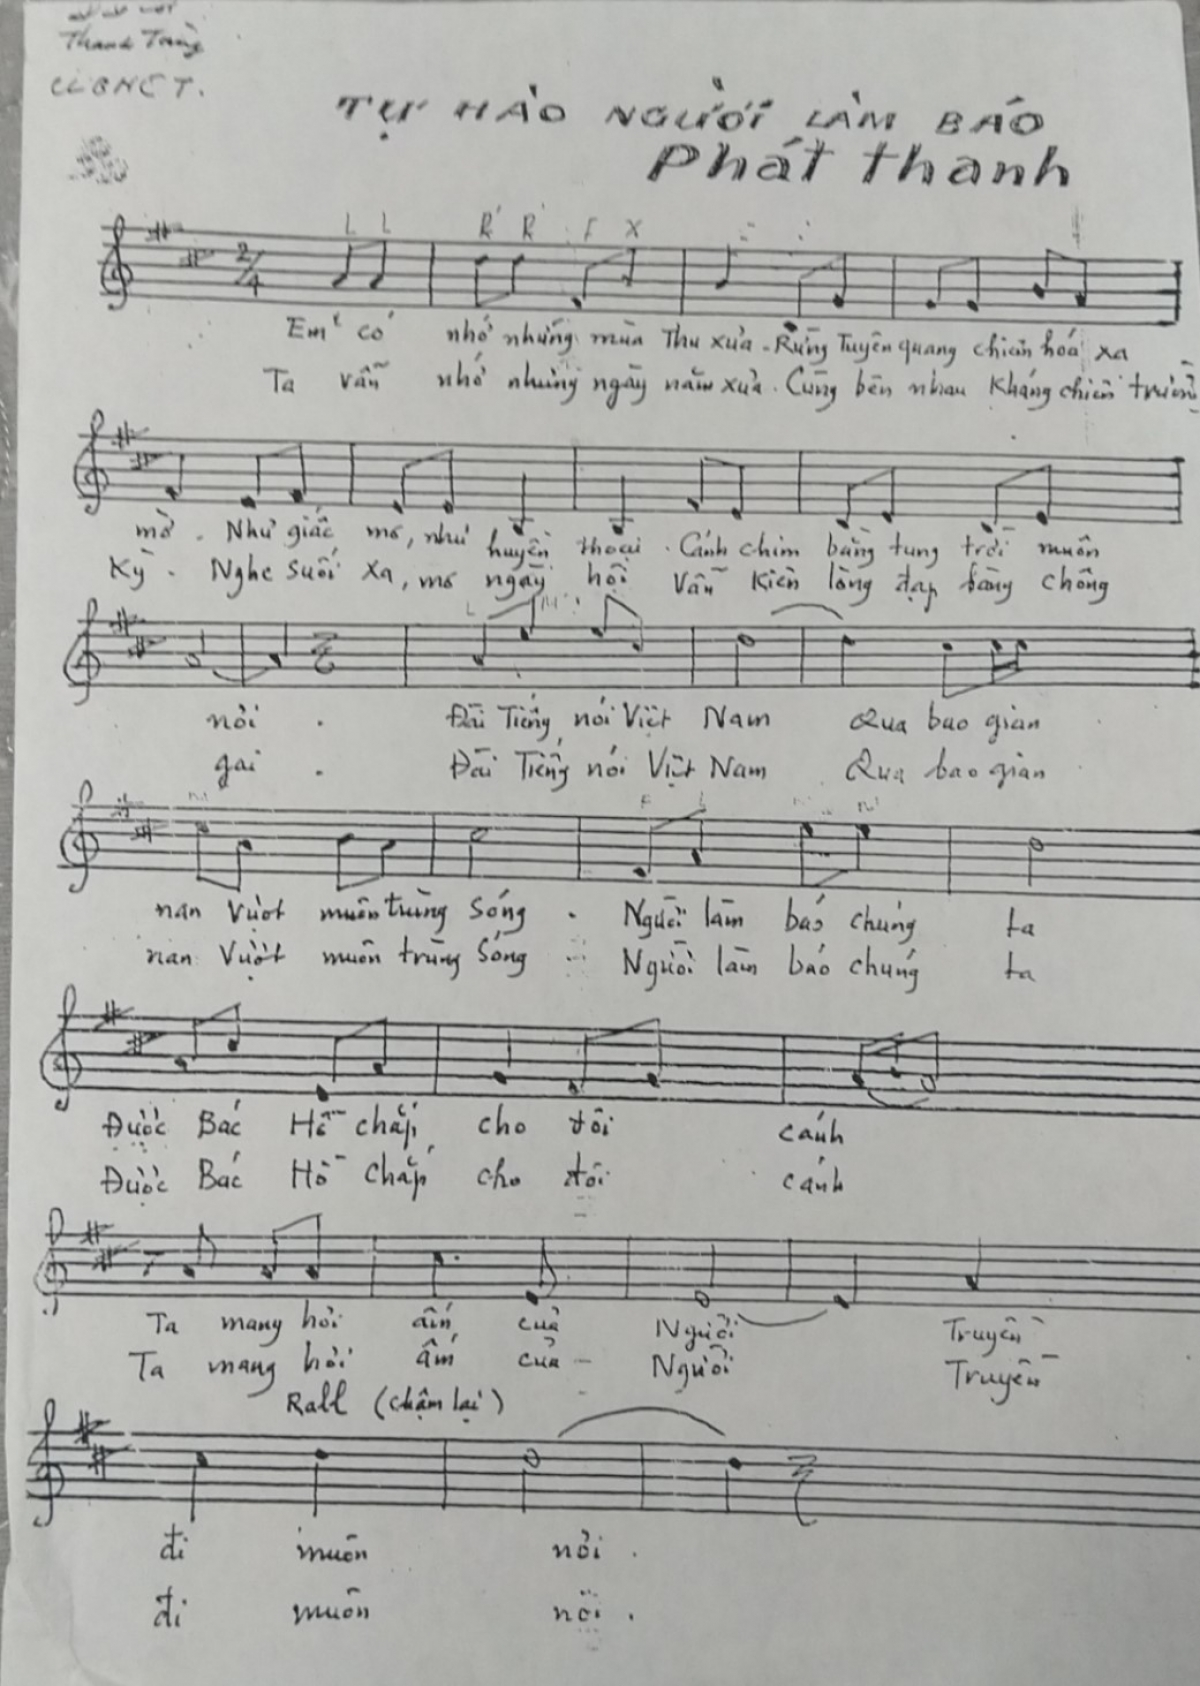 Thanh Tùng
CLBNCT.
TỰ HÀO NGƯỜI LÀM BÁO
Phát thanh
2/4
L L R R F X
Em có nhớ những mùa Thu xưa. Rừng Tuyên quang chiến hoá xa
Ta vẫn nhớ những ngày năm xưa. Cùng bên nhau Kháng chiến trường
mờ. Như giấc mơ, như huyền thoại. Cánh chim bằng tung trời muôn
Kỳ. Nghe suối xa, mơ ngày hội Vẫn kiên lòng đạp bằng chông
nơi.  Đài Tiếng nói Việt Nam Qua bao gian
gai. Đài Tiếng nói Việt Nam Qua bao gian
nan Vượt muôn trùng sóng. Người làm báo chúng ta
nan Vượt muôn trùng sóng Người làm báo chúng ta
Được Bác Hồ chắp cho đôi cánh
Được Bác Hồ chắp cho đôi cánh
Ta mang hơi ấm của Người Truyền
Ta mang hơi ấm của Người Truyền
Rall (chậm lại)
đi muôn nơi.
đi muôn nơi.